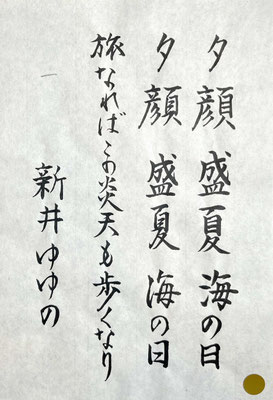 夕顔 盛夏 海の日
夕顔 盛夏 海の日
旅なればこの炎天も歩くなり
新井ゆゆの